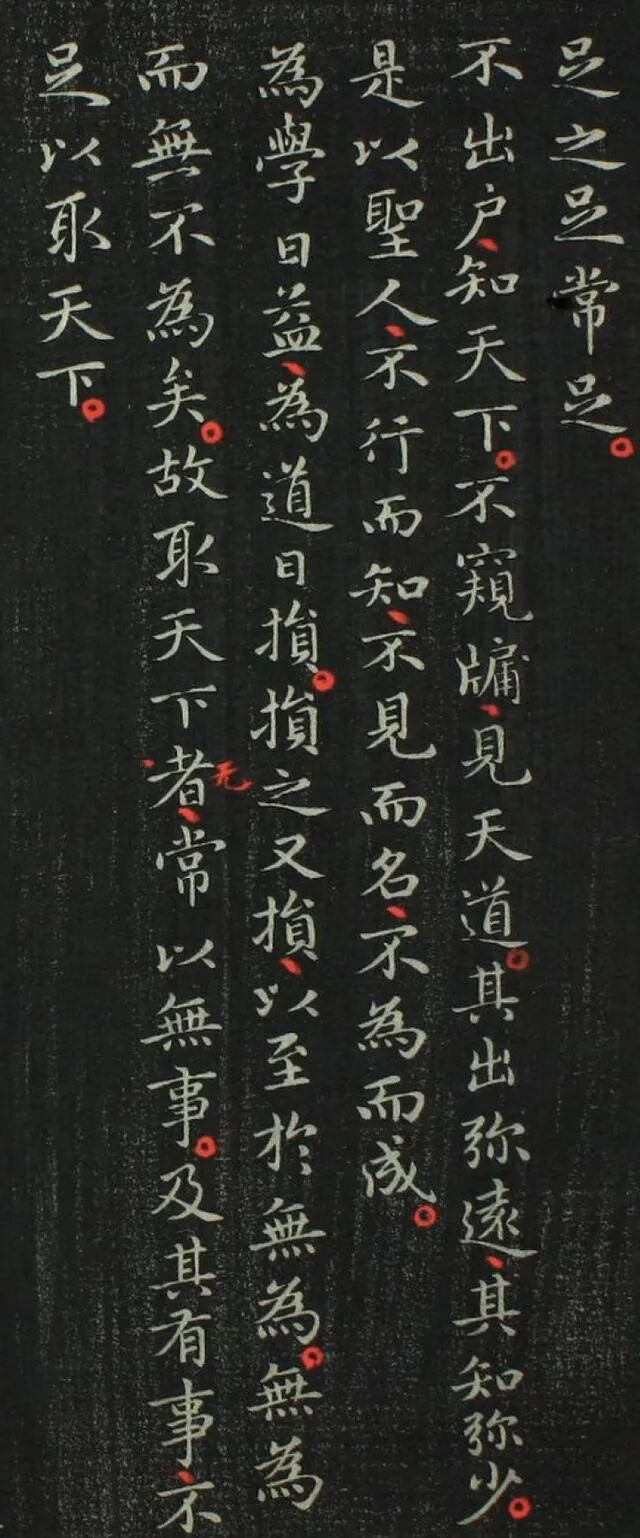 足之足常足。
不出户、知天下。不窺牖、見天道。其出弥遠、其知弥少。
是以聖人、不行而知、不見而名、不為而成。
為學日益、為道日損。損之又損、以至於無為。無為
而無不為矣。故取天下者、常以無事。及其有事、不
足以取天下。
无